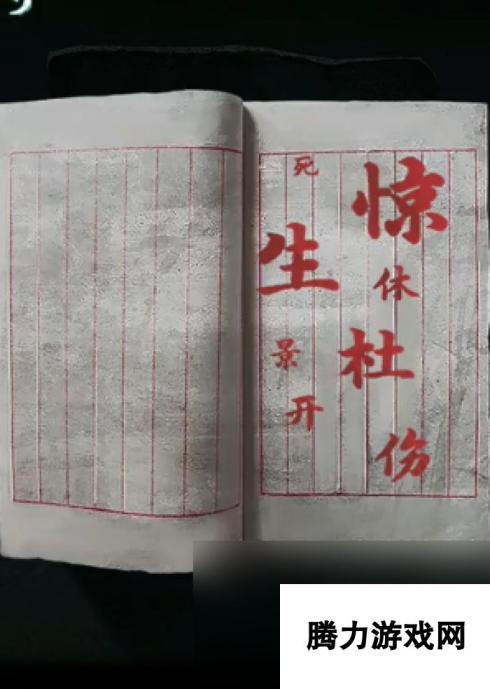 惊
休
杜
伤
死
生
景
开
腾力游戏网